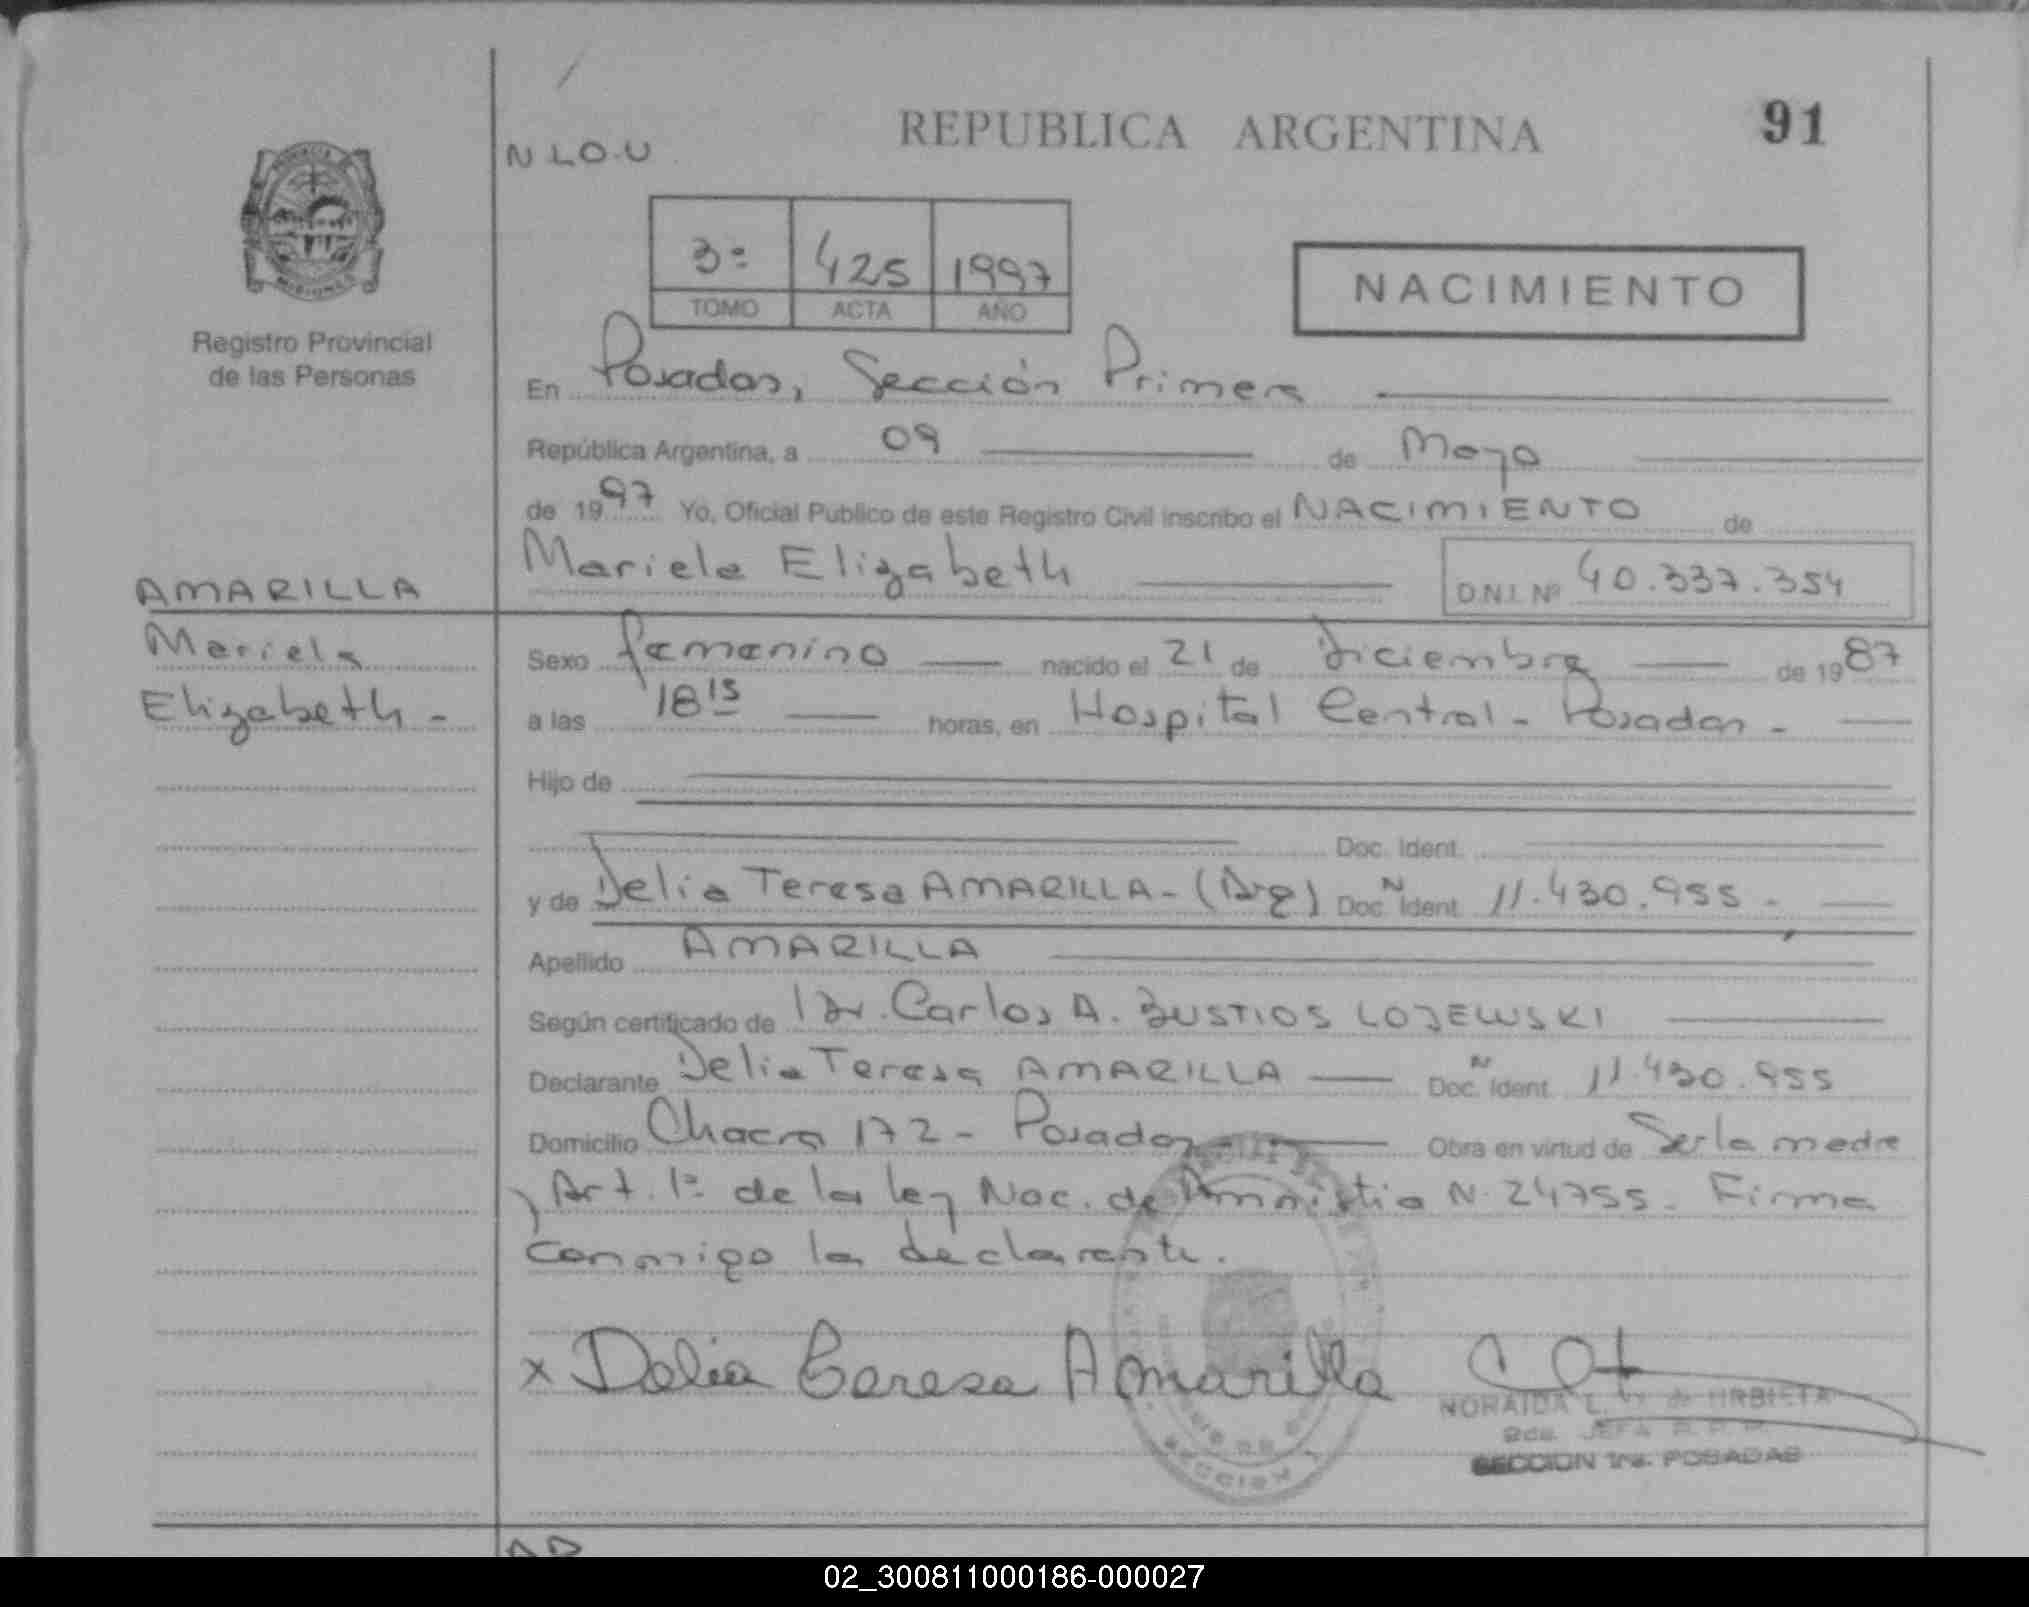 REPUBLICA ARGENTINA
91
N L O.U
3º 425 1997
TOMO ACTA AÑO
NACIMIENTO
Registro Provincial
de las Personas
En Posadas, Sección Primera
República Argentina, a 09 de Mayo
de 1997 Yo, Oficial Publico de este Registro Civil inscribo el NACIMIENTO de
Mariela Elizabeth D.N.I. Nº 40.337.354
AMARILLA
Mariela
Elizabeth -
Sexo femenino nacido el 21 de Diciembre de 1987
a las 18 15 horas, en Hospital Central - Posadas -
Hijo de
Doc. Ident.
y de Delia Teresa AMARILLA - (Arg) Doc. N Ident. 11.430.955 -
Apellido AMARILLA
Según certificado de Dr. Carlos A. BUSTIOS LOJEWSKI
Declarante Delia Teresa AMARILLA Doc. N Ident. 11.430.955
Domicilio Chacra 172 - Posadas Obra en virtud de Ser la madre
y Art. 1º de la ley Nac. de Amnistia N. 24755 - Firma
conmigo la declarante.
x Delia Teresa Amarilla
NORAIDA L. de URBIETA
2da. JEFA R. P. P.
SECCION 1ra. POSADAS
02_300811000186-000027